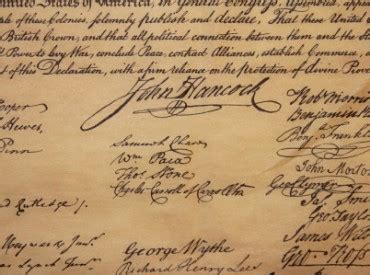 United States of America, in General Congress, Assembled, appea
of these Colonies, solemnly publish and declare, That these United
British Crown; and that all political connection between them and the Sta
Power to levy War, conclude Peace, contract Alliances, establish Commerce, a
of this Declaration, with a firm reliance on the protection of divine Prove
John Hancock
Rob Morris
Benjamin
Benj. Frankli
Hewes,
Penn
Samuel Chase
Wm Paca
Thos. Stone
Charles Carroll of Carrollton
John Morton
Geo Clymer
Ja. Smi
Geo. Taylo
James Wil
Geo. Ross
Rutledge
Heyward Junr.
Lynch Junr.
George Wythe
Richard Henry Lee